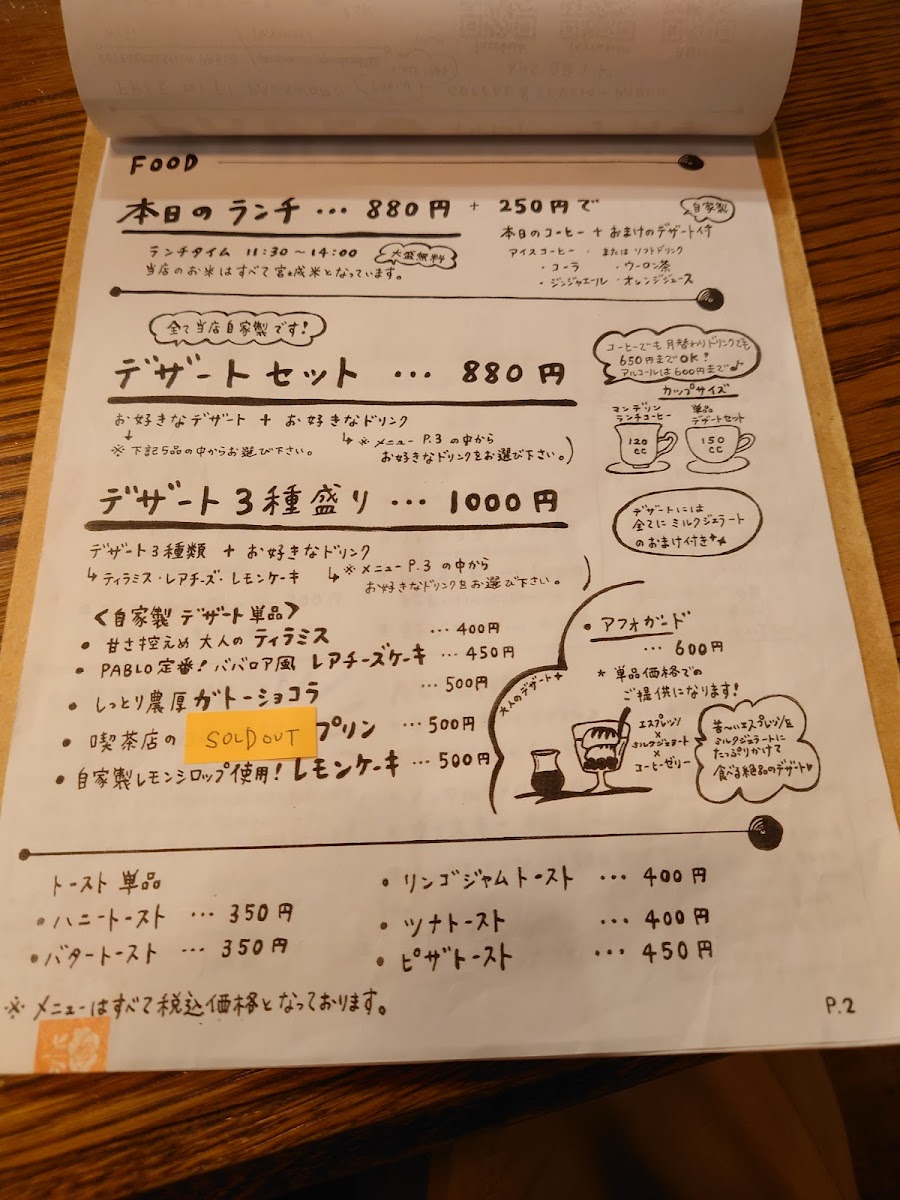 FOOD
本日のランチ … 880円 + 250円で
自家製
本日のコーヒー + おまけのデザート付
ランチタイム 11:30～14:00
大盛無料
当店のお米はすべて宮城米となっています。
アイスコーヒー ・ または ソフトドリンク
・コーラ ・ウーロン茶
・ジンジャエール ・オレンジジュース
全て当店自家製です!
デザートセット … 880円
お好きなデザート + お好きなドリンク
※下記5品の中からお選び下さい。
※メニュー P.3 の中から
お好きなドリンクをお選び下さい。)
コーヒーでも月替わりドリンクでも
650円までOK!
アルコールは600円まで♪
カップサイズ
マンデリン
ランチコーヒー
120
CC
単品
デザートセット
150
CC
デザート3種盛り … 1000円
デザート3種類 + お好きなドリンク
ティラミス・レアチーズ・レモンケーキ
※メニュー P.3 の中から
お好きなドリンクをお選び下さい。
デザートには
全てにミルクジェラート
のおまけ付き
<自家製 デザート単品>
・甘さ控えめ 大人の ティラミス … 400円
・PABLO定番! ババロア風 レアチーズケーキ … 450円
・しっとり濃厚 ガトーショコラ … 500円
・喫茶店の SOLD OUT プリン … 500円
・自家製レモンシロップ使用! レモンケーキ … 500円
大人のデザート
・アフォガード
… 600円
*単品価格での
ご提供になります!
エスプレッソ
×
ミルクジェラート
×
コーヒーゼリー
苦～いエスプレッソを
ミルクジェラートに
たっぷりかけて
食べる絶品のデザート
トースト 単品
・ハニートースト … 350円
・バタートースト … 350円
・リンゴジャムトースト … 400円
・ツナトースト … 400円
・ピザトースト … 450円
※メニューはすべて税込価格となっております。
P.2